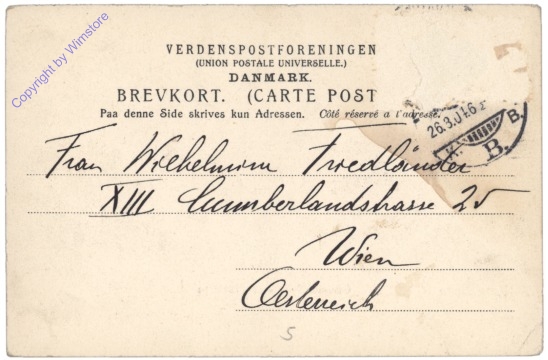 Copyright by Wimstore
VERDENSPOSTFORENINGEN
(UNION POSTALE UNIVERSELLE.)
DANMARK.
BREVKORT. (CARTE POST
Paa denne Side skrives kun Adressen. Côté réservé a l'adresse.
26.3.0 4-6 E
K. B.
B.
Frau Wilhelmine Friedländer
XIII Cumberlandstrasse 25
Wien
Oesterreich
5